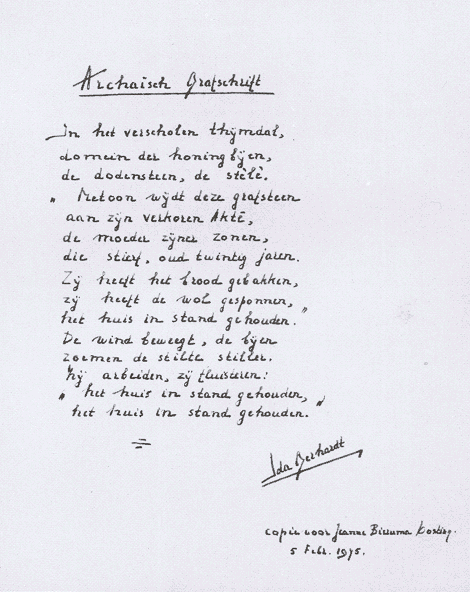 Archaïsch Grafschrift
In het verscholen thijmdal,
domein der honingbijen,
de dodensteen, de stèlè.
„ Metoon wijdt deze grafsteen
aan zijn verkoren Aktè,
de moeder zijner zonen,
die stierf, oud twintig jaren.
Zij heeft het brood gebakken,
zij heeft de wol gesponnen,
het huis in stand gehouden. ”
De wind beweegt, de bijen
zoemen de stilte stiller.
Zij arbeiden, zij fluisteren:
„ het huis in stand gehouden,
het huis in stand gehouden. ”
Ida Gerhardt
copie voor Jeanne Bieruma Oosting.
5 Febr. 1975.